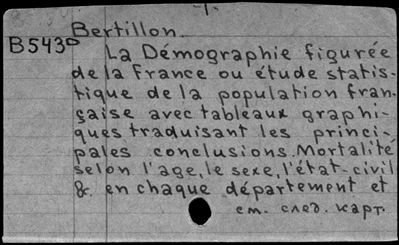 -1.
Bertillon.
B5430
La Démographie figurée
de la France ou étude statis-
tique de la population fran-
çaise avec tableaux graphi-
ques traduisant les princi-
pales conclusions. Mortalité
selon l'age, le sexe, l'état-civil
&. en chaque département et
см. след. карт.